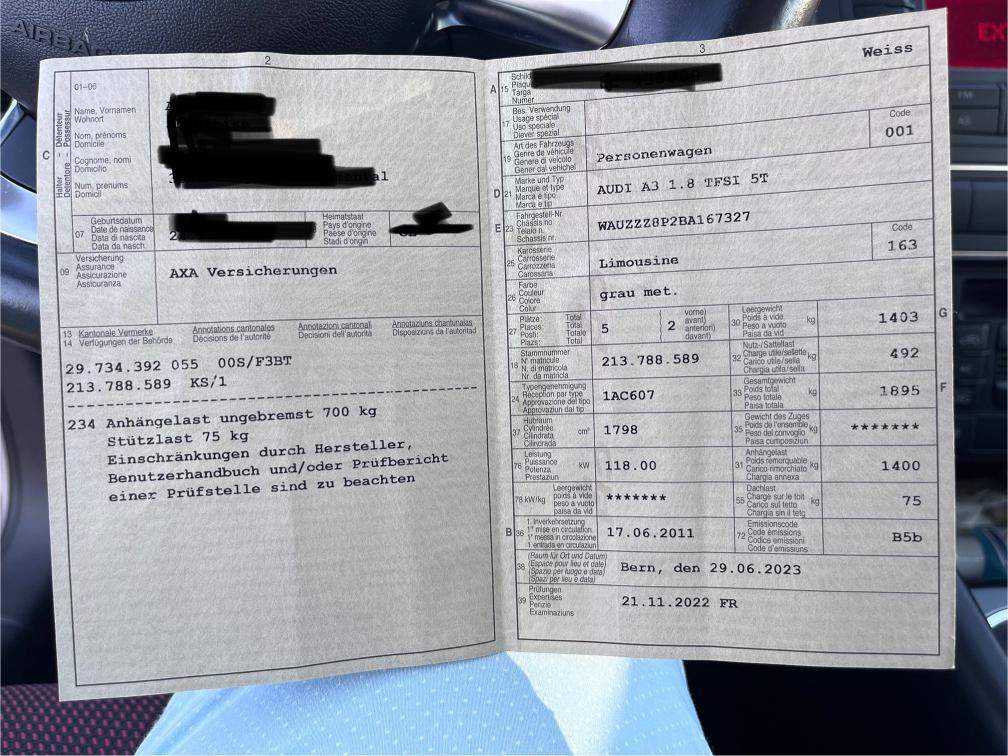 AIRBAG
2
01-06
C
Halter - Détenteur
Detentore - Possessur
Name, Vornamen
Wohnort
Nom, prénoms
Domicile
Cognome, nomi
Domicilio
Num, prenums
Domicil
07
Geburtsdatum
Date de naissance
Data di nascita
Data da nasch.
Heimatstaat
Pays d'origine
Paese d'origine
Stadi d'origin
09
Versicherung
Assurance
Assicurazione
Assicuranza
AXA Versicherungen
13
14
Kantonale Vermerke
Verfügungen der Behörde
Annotations cantonales
Décisions de l'autorité
Annotazioni cantonali
Decisioni dell'autorità
Annotaziuns chantunalas
Disposiziuns da l'autoritad
29.734.392 055 00S/F3BT
213.788.589 KS/1
234 Anhängelast ungebremst 700 kg
Stützlast 75 kg
Einschränkungen durch Hersteller,
Benutzerhandbuch und/oder Prüfbericht
einer Prüfstelle sind zu beachten
3
Weiss
A 15
Schild
Plaque
Targa
Numer
17
Bes. Verwendung
Usage spécial
Uso speciale
Diever spezial
Code
001
19
Art des Fahrzeugs
Genre de véhicule
Genere di veicolo
Gener dal vehichel
Personenwagen
D 21
Marke und Typ
Marque et type
Marca e tipo
Marca e tip
AUDI A3 1.8 TFSI 5T
E 23
Fahrgestell-Nr.
Châssis no
Telaio n.
Schassis nr.
WAUZZZ8P2BA167327
25
Karosserie
Carrosserie
Carrozzeria
Carossaria
Limousine
Code
163
26
Farbe
Couleur
Colore
Colur
grau met.
27
Plätze: Total
Places: Total
Posti: Totale
Plazs: Total
5
2
vorne)
avant)
anteriori)
davant)
30
Leergewicht
Poids à vide
Peso a vuoto
Paisa da vid
kg
1403
G
18
Stammnummer
N° matricule
N. di matricola
Nr. da matricla
213.788.589
32
Nutz-/Sattellast
Charge utile/sellette
Carico utile/sella
Chargia utila/sella
kg
492
24
Typengenehmigung
Réception par type
Approvazione del tipo
Approvaziun dal tip
1AC607
33
Gesamtgewicht
Poids total
Peso totale
Paisa totala
kg
1895
F
37
Hubraum
Cylindrée
Cilindrata
Cilindrada
cm³
1798
35
Gewicht des Zuges
Poids de l'ensemble
Peso del convoglio
Paisa cumposiziun
kg
*******
76
Leistung
Puissance
Potenza
Prestaziun
kW
118.00
31
Anhängelast
Poids remorquable
Carico rimorchiato
Chargia annexa
kg
1400
78 kW/kg
Leergewicht
poids à vide
peso a vuoto
paisa da vid
*******
55
Dachlast
Charge sur le toit
Carico sul tetto
Chargia sin il tetg
kg
75
B 36
1. Inverkehrsetzung
1re mise en circulation
1a messa in circolazione
1. entrada en circulaziun
17.06.2011
72
Emissionscode
Code émissions
Codice emissioni
Code d'emissiuns
B5b
38
(Raum für Ort und Datum)
(Espace pour lieu et date)
(Spazio per luogo e data)
(Spazi per lieu e data)
Bern, den 29.06.2023
39
Prüfungen
Expertises
Perizie
Examinaziuns
21.11.2022 FR